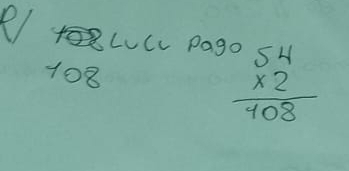 R/ 108 Lucu pago
108
54
x2
108